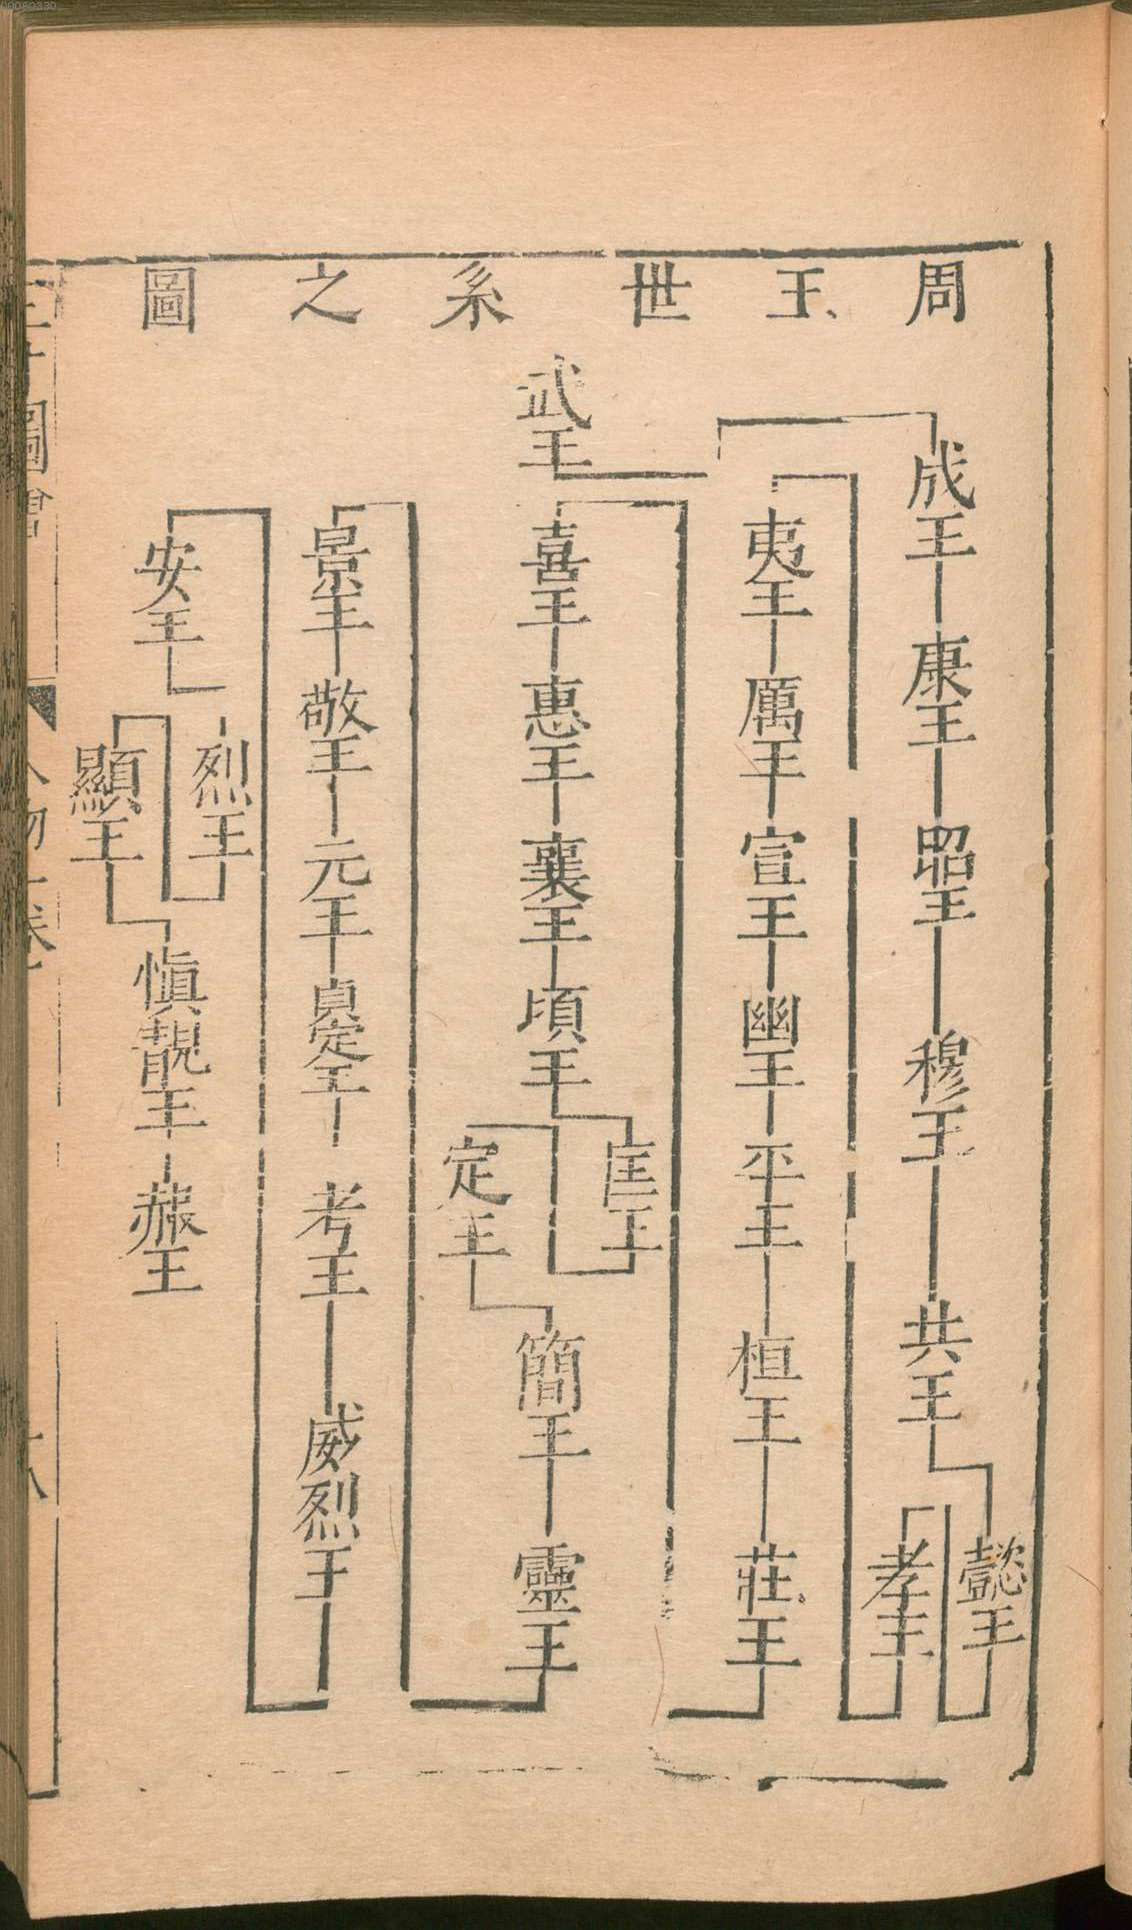 00080330
周王世系之圖
武王
成王 康王 昭王 穆王 共王 懿王
孝王
夷王 厲王 宣王 幽王 平王 桓王 莊王
喜王 惠王 襄王 頃王 匡王
定王 簡王 靈王
景王 敬王 元王 貞定王 考王 威烈王
安王 烈王
顯王 慎靚王 赧王
圖會 人物一卷